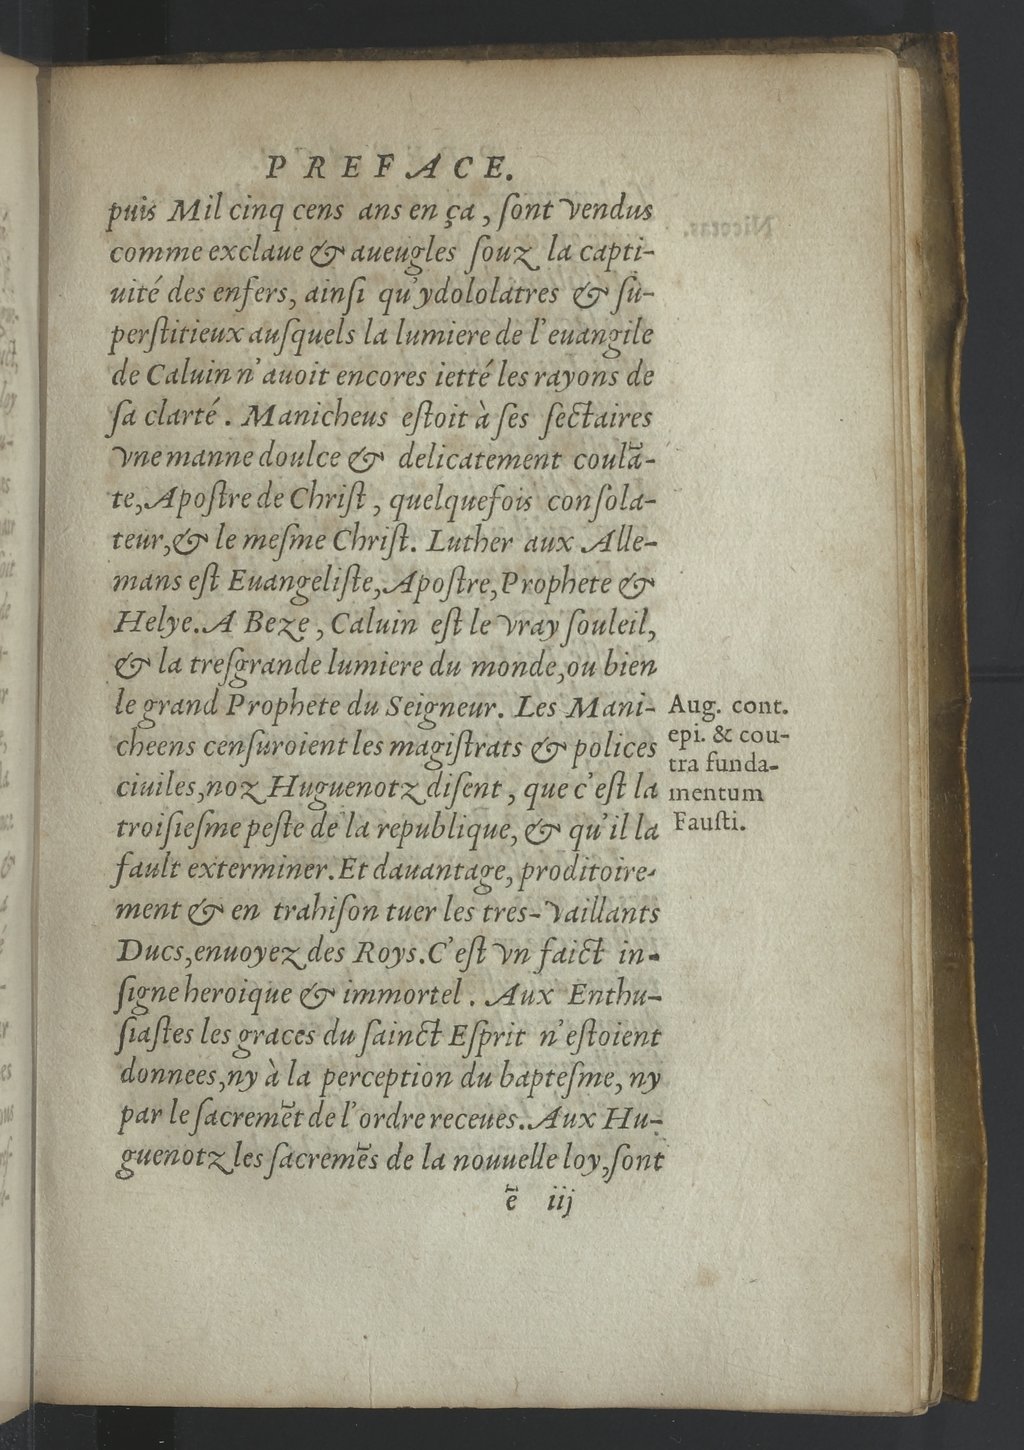 PREFACE.
puis Mil cinq cens ans en ça, ſont vendus
comme exclaue & aueugles ſouz la capti-
uité des enfers, ainſi qu'ydololatres & ſu-
perſtitieux auſquels la lumiere de l'euangile
de Caluin n'auoit encores ietté les rayons de
ſa clarté. Manicheus eſtoit à ſes ſectaires
vne manne doulce & delicatement coulã-
te, Apoſtre de Chriſt, quelquefois conſola-
teur, & le meſme Chriſt. Luther aux Alle-
mans eſt Euangeliſte, Apoſtre, Prophete &
Helye. A Beze, Caluin eſt le vray ſouleil,
& la treſgrande lumiere du monde, ou bien
le grand Prophete du Seigneur. Les Mani-
cheens cenſuroient les magiſtrats & polices
ciuiles, noz Huguenotz diſent, que c'eſt la
troiſieſme peſte de la republique, & qu'il la
fault exterminer. Et dauantage, proditoire-
ment & en trahiſon tuer les tres-vaillants
Ducs, enuoyez des Roys. C'eſt vn faict in-
ſigne heroique & immortel. Aux Enthu-
ſiaſtes les graces du ſainct Eſprit n'eſtoient
donnees, ny à la perception du bapteſme, ny
par le ſacremẽt de l'ordre receues. Aux Hu-
guenotz les ſacremẽs de la nouuelle loy, ſont
ẽ iij
Aug. cont.
epi. & cou-
tra funda-
mentum
Fauſti.